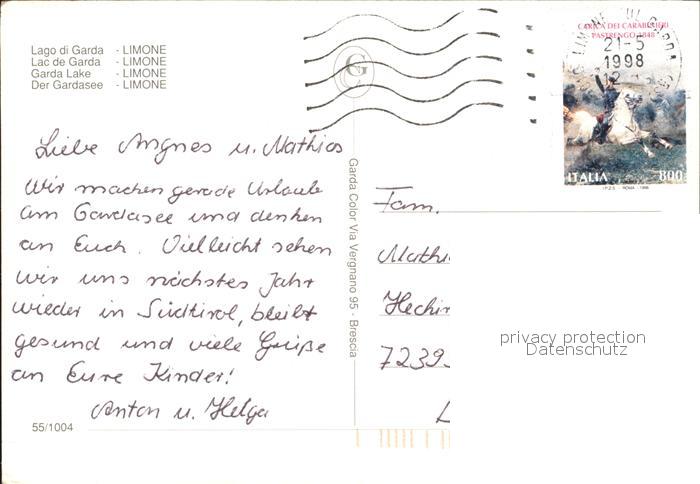 Lago di Garda - LIMONE
Lac de Garda - LIMONE
Garda Lake - LIMONE
Der Gardasee - LIMONE
Liebe Angnes u. Mathias
Wir machen gerade Urlaub
am Gardasee und denken
an Euch. Vielleicht sehen
wir uns nächstes Jahr
wieder in Südtirol, bleibt
gesund und viele Grüße
an Eure Kinder!
Anton u. Helga
55/1004
Garda Color Via Vergnano 95 - Brescia
CARICA DEI CARABINIERI
PASTRENGO 1848
21-5
1998
12
ITALIA 800
I.P.Z.S. - ROMA - 1998
Fam.
Mathi
Hechin
7239
privacy protection
Datenschutz